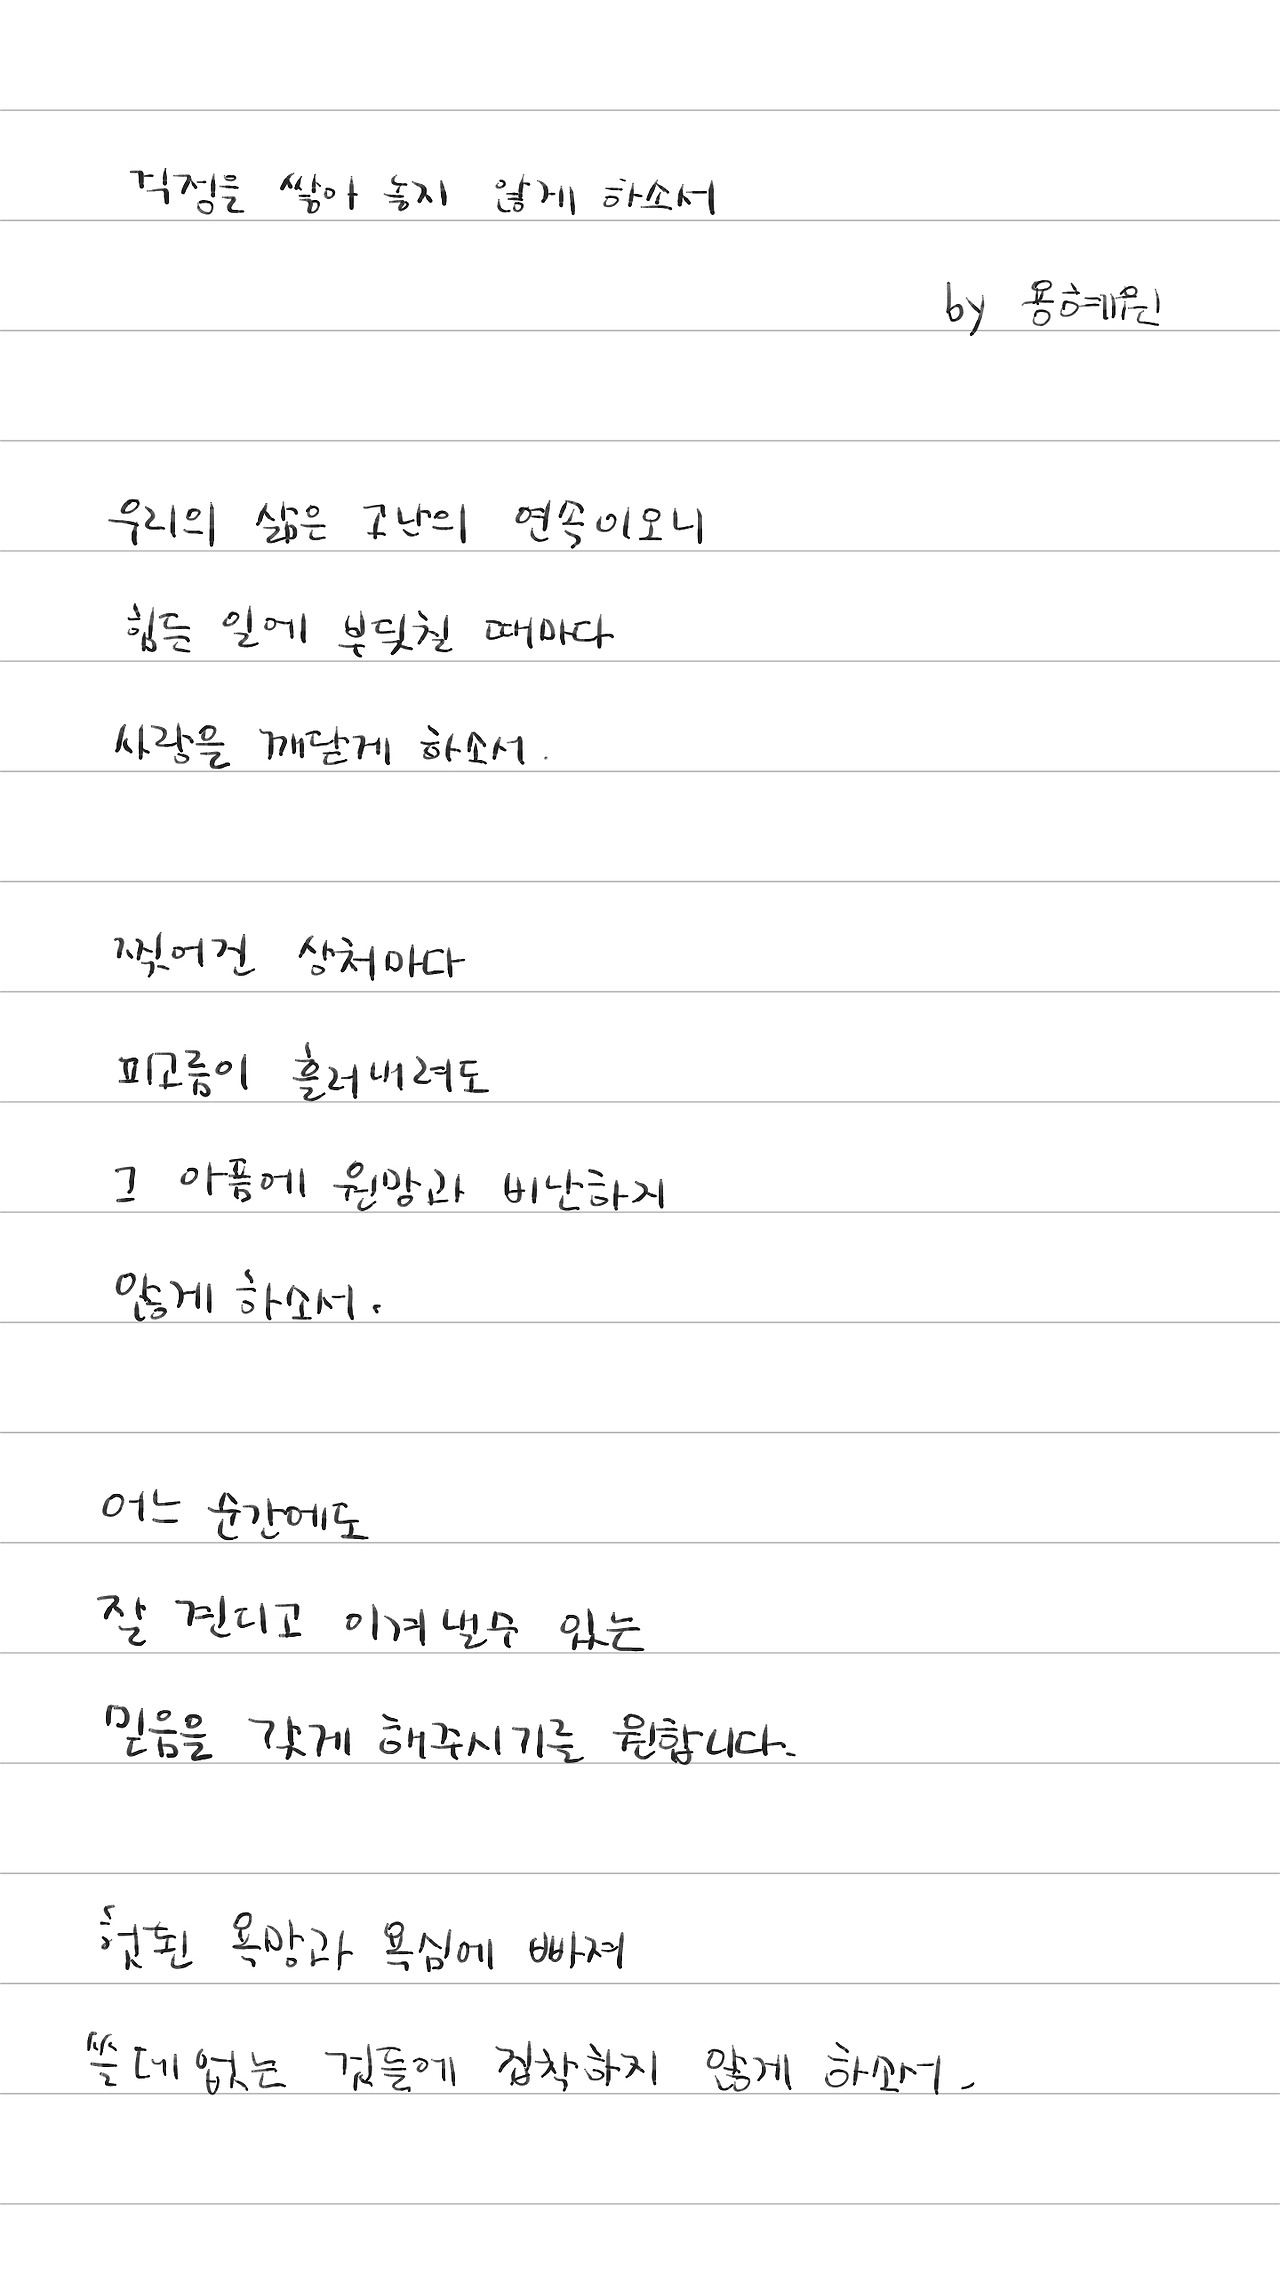 걱정을 쌓아 놓지 않게 하소서
by 용혜원
우리의 삶은 고난의 연속이오니
힘든 일에 부딪칠 때마다
사랑을 깨닫게 하소서.
찢어진 상처마다
피고름이 흘러내려도
그 아픔에 원망과 비난하지
않게 하소서.
어느 순간에도
잘 견디고 이겨낼수 있는
믿음을 갖게 해주시기를 원합니다.
헛된 욕망과 욕심에 빠져
쓸데없는 것들에 집착하지 않게 하소서.